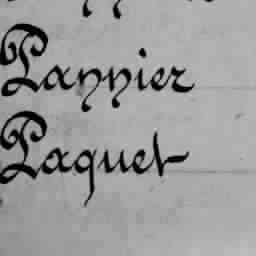 Pannier
Paquet